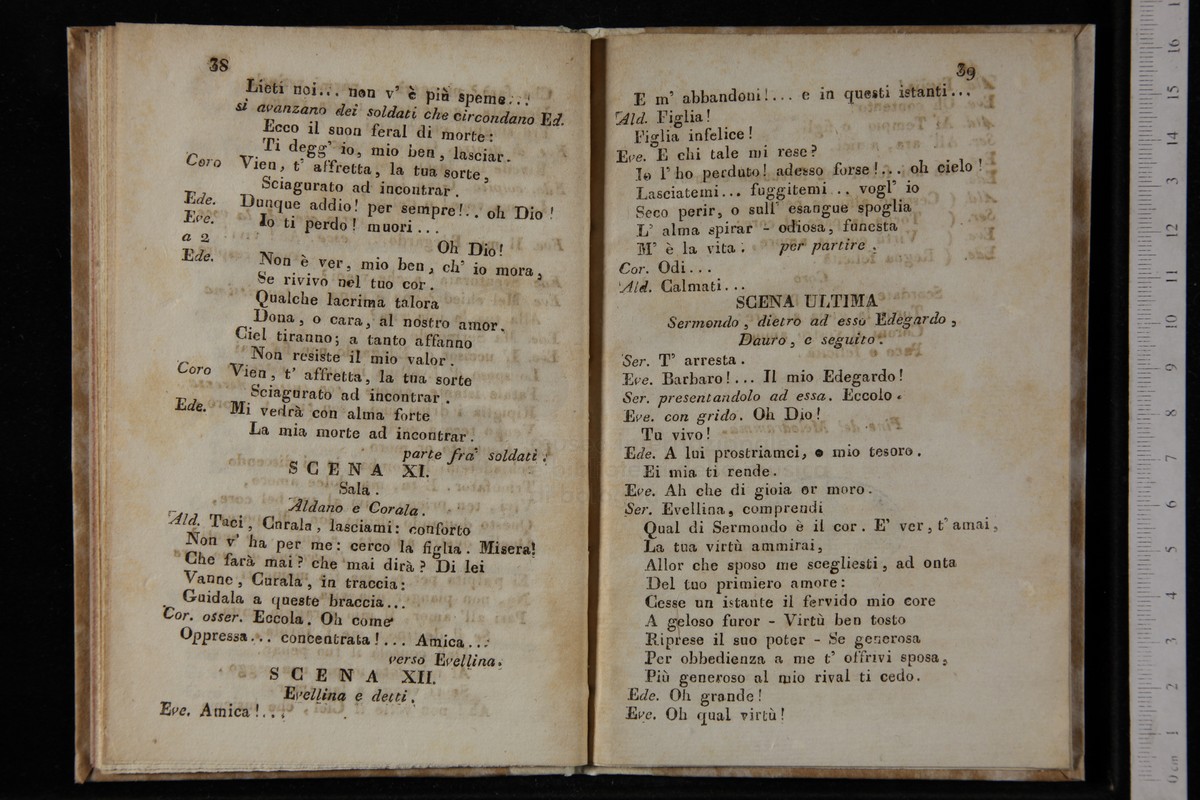 38
Lieti noi... non v' è più speme...
si avanzano dei soldati che circondano Ed.
Ecco il suon feral di morte:
Ti degg' io, mio ben, lasciar.
Coro Vien, t' affretta, la tua sorte,
Sciagurato ad incontrar.
Ede. Dunque addio! per sempre!.. oh Dio!
Eve. Io ti perdo! muori...
a 2 Oh Dio!
Ede. Non è ver, mio ben, ch' io mora,
Se rivivo nel tuo cor.
Qualche lacrima talora
Dona, o cara, al nostro amor.
Ciel tiranno; a tanto affanno
Non resiste il mio valor.
Coro Vien, t' affretta, la tua sorte
Sciagurato ad incontrar.
Ede. Mi vedrà con alma forte
La mia morte ad incontrar.
parte fra' soldati.
SCENA XI.
Sala.
Aldano e Corala.
Ald. Taci, Corala, lasciami: conforto
Non v' ha per me: cerco la figlia. Misera!
Che farà mai? che mai dirà? Di lei
Vanne, Corala, in traccia:
Guidala a queste braccia...
Cor. osser. Eccola. Oh come
Oppressa... concentrata!... Amica...
verso Evellina.
SCENA XII.
Evellina e detti.
Eve. Amica!...
39
E m' abbandoni!... e in questi istanti...
Ald. Figlia!
Figlia infelice!
Eve. E chi tale mi rese?
Io l' ho perduto! adesso forse!... oh cielo!
Lasciatemi... fuggitemi .. vogl' io
Seco perir, o sull' esangue spoglia
L' alma spirar - odiosa, funesta
M' è la vita. per partire.
Cor. Odi...
Ald. Calmati...
SCENA ULTIMA
Sermondo, dietro ad esso Edegardo,
Dauro, e seguito.
Ser. T' arresta.
Eve. Barbaro!... Il mio Edegardo!
Ser. presentandolo ad essa. Eccolo.
Eve. con grido. Oh Dio!
Tu vivo!
Ede. A lui prostriamci, o mio tesoro.
Ei mia ti rende.
Eve. Ah che di gioia or moro.
Ser. Evellina, comprendi
Qual di Sermondo è il cor. E' ver, t' amai,
La tua virtù ammirai,
Allor che sposo me scegliesti, ad onta
Del tuo primiero amore:
Cesse un istante il fervido mio core
A geloso furor - Virtù ben tosto
Riprese il suo poter - Se generosa
Per obbedienza a me t' offrivi sposa,
Più generoso al mio rival ti cedo.
Ede. Oh grande!
Eve. Oh qual virtù!